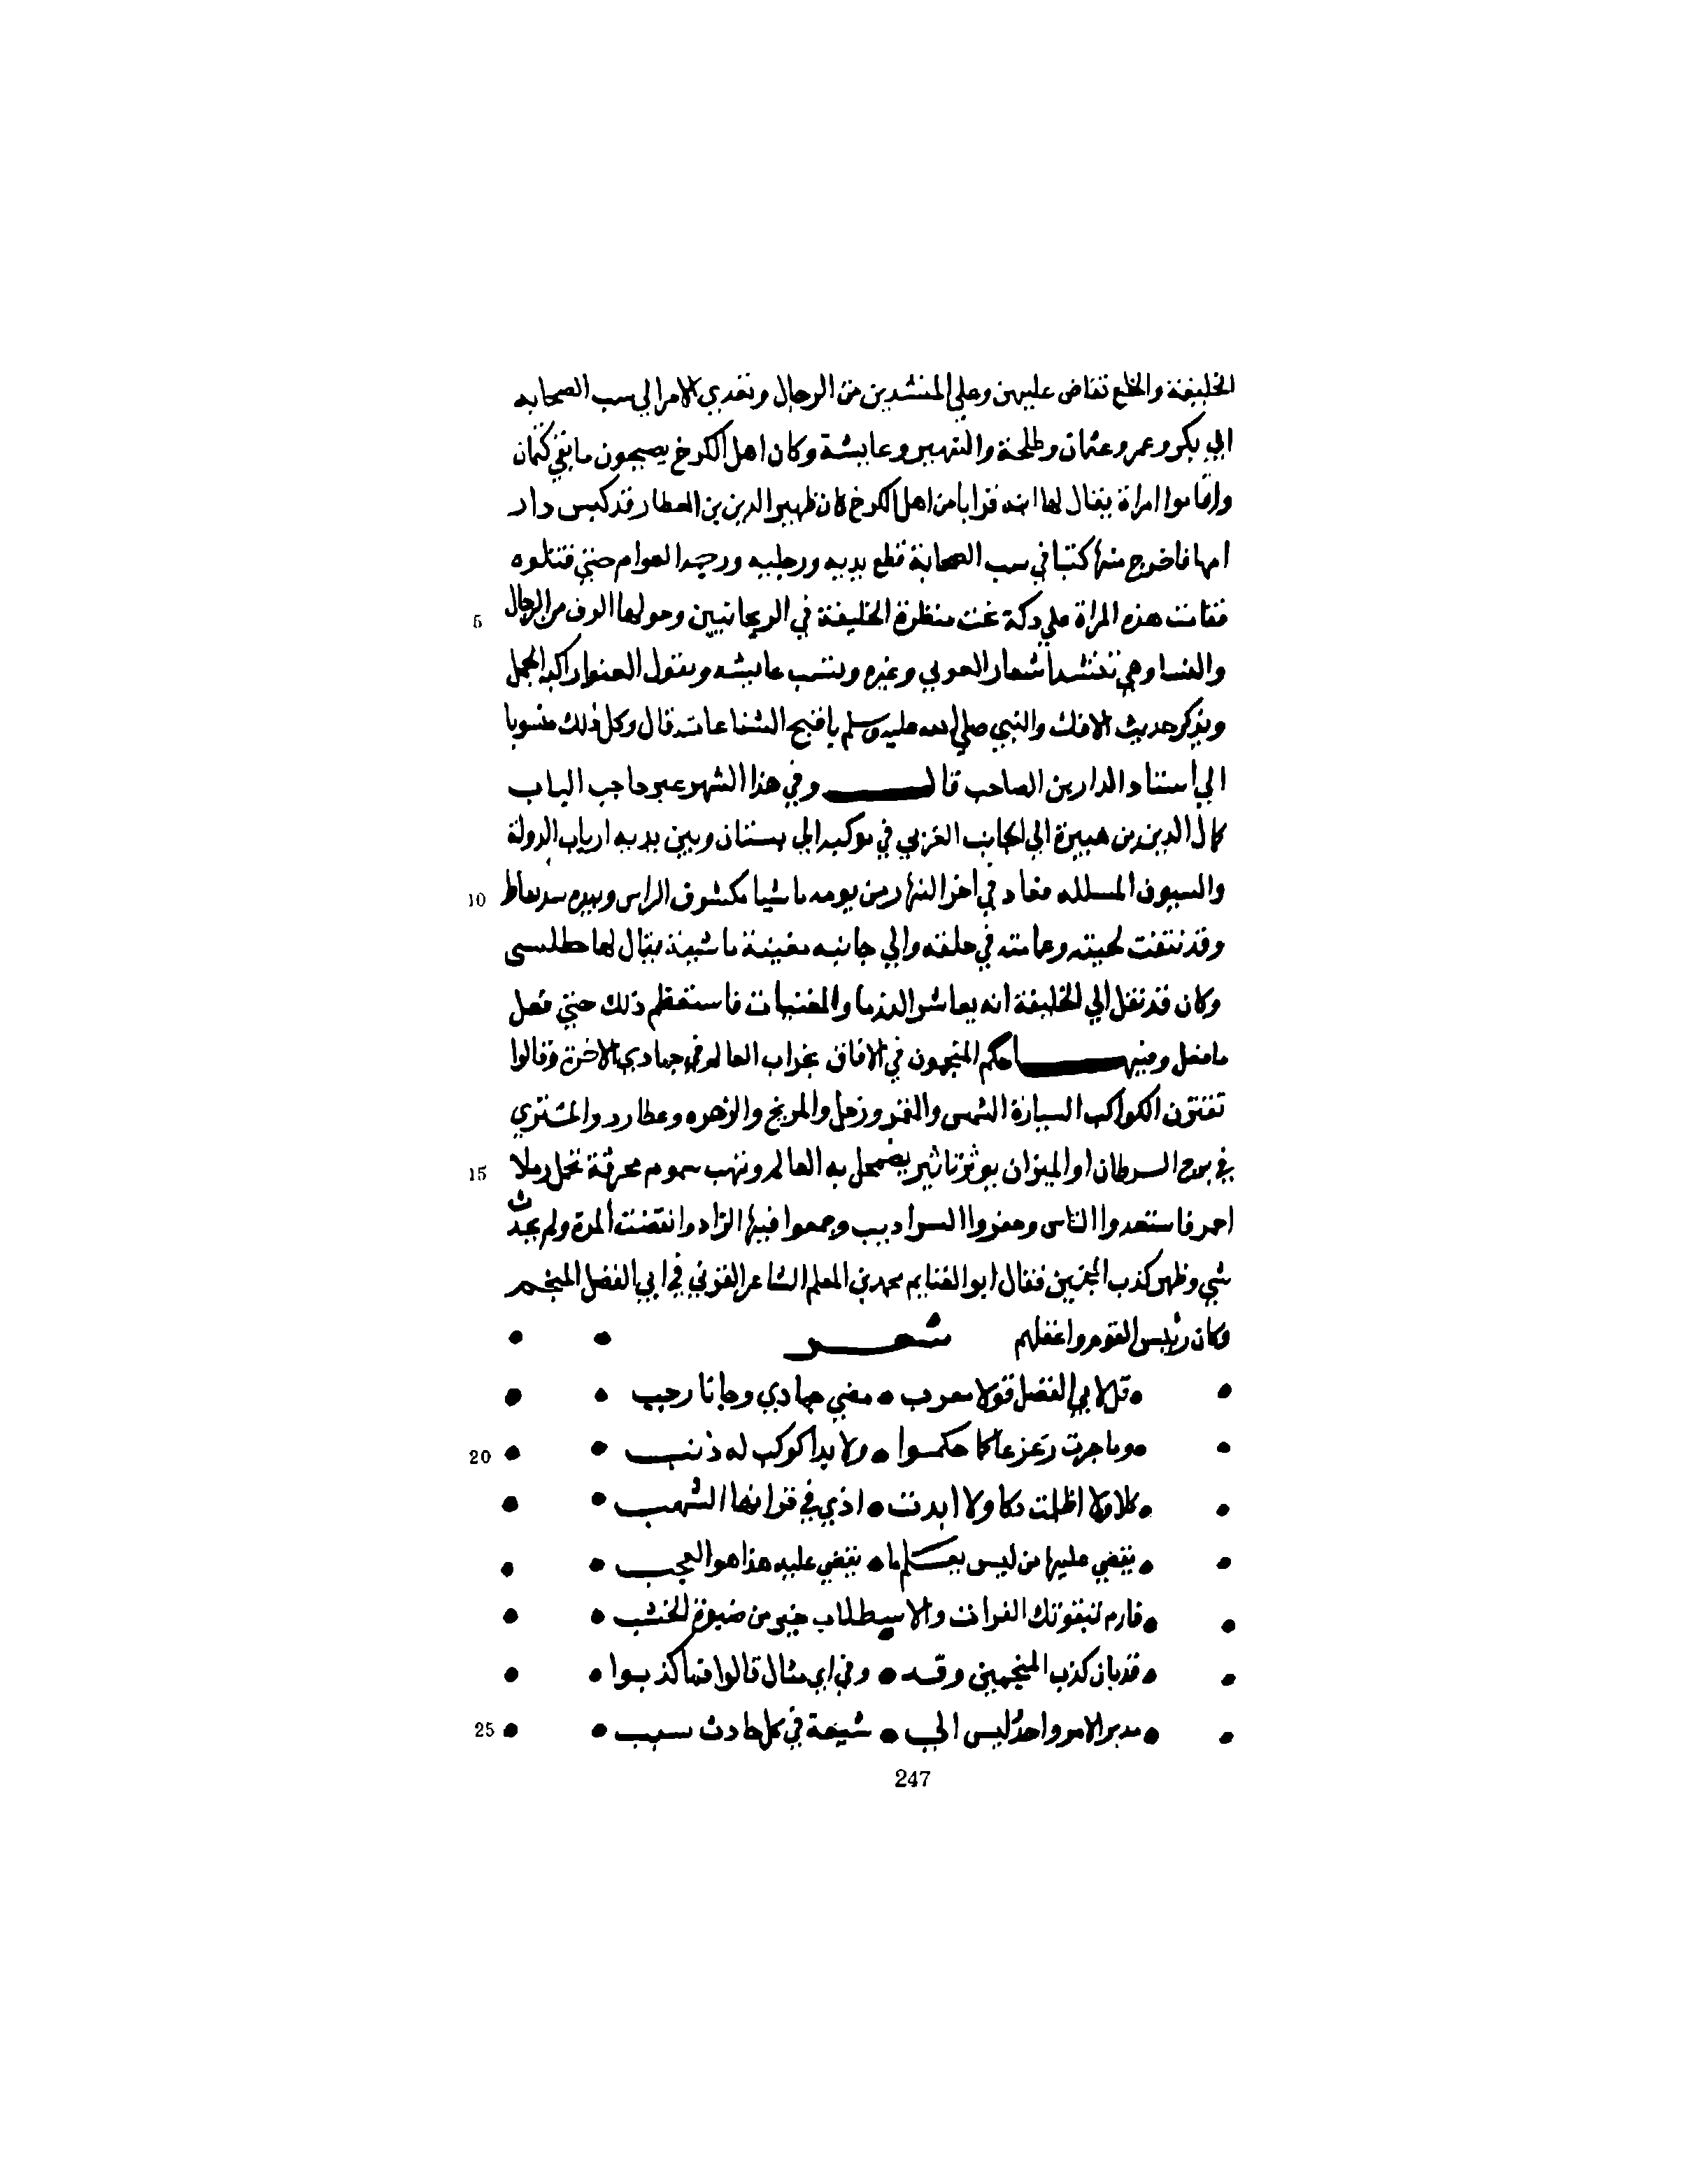 الخليفة والخلع تفاض عليهن وعلي المنشدين من الرجال وتعدي الامر الي سب الصحابه
ابي بكر وعمر وعثمان وطلحة والزبير وعايشة وكان اهل الكرخ يصيحون ما بقي كتمان
واقاموا امراة يقال لها ابنه قرايا من اهل الكرخ كان ظهير الدين بن العطار قد كبس دار
ابيها فاخرج منها كتبا في سب الصحابة قطع يديه ورجليه ورجمه العوام حتي قتلوه
5 فقامت هذه المراة علي دكة تحت منظرة الخليفة في الريحانيين وحولها الوف من الرجال
والنسا وهي تنشد اشعار العوني وغيره وتسب عايشه وتقول العنوا راكبه الجمل
وتذكر حديث الافك والنبي صلي الله عليه وسلم باقبح الشناعات قال وكل ذلك منسوبا
الي استاد الدار بن الصاحب قال وفي هذا الشهر عبر حاجب الباب
كمال الدين بن هبيرة الي الجانب الغربي في موكبه الي بستان وبين يديه ارباب الدولة
10 والسيوف المسلله فعاد في اخر النهار من يومه ماشيا مكشوف الراس وبيده
وقد نتفت لحيته وعمامته في حلقه والي جانبه مغنية ماشية يقال لها
وكان قد نقل الي الخليفة انه يعاشر الندما والمغنيات فاستعظم ذلك حتي فعل
ما فعل وفيها حكم المنجمون في الافاق بخراب العالم في جمادي الاخرة وقالوا
تقترن الكواكب السيارة الشمس والقمر وزحل والمريخ والزهره وعطارد والمشتري
15 في برج السرطان او الميزان يوثر تاثير يضمحل به العالم وتهب سموم محرقة تحمل رملا
احمر فاستعدوا الناس وحفروا السراديب وجمعوا فيها الزاد وانقضت المدة ولم يحدث
شي وظهر كذب المنجمين فقال ابو الغنايم محمد بن المعلم الشاعر في ابي الفضل المنجم
وكان رئيس القوم واعقلهم شعر
قل لابي الفضل قولا معرب • مضي جمادي وجانا رجب
20 وما جرت زعزعا كما حكموا • ولا بدا كوكب له ذنب
كلا ولا اظلمت ذكا ولا ابدت • اذي في قرانها الشهب
يقضي عليها من ليس يعلم ما • يقضي عليه هذا هو العجب
فارم بتقويمك الفرات والاسطرلاب خير من الخشب
قد بان كذب المنجمين وقد • وفي اي مقال قالوا فما كذبوا
25 مدبر الامر واحد ليس الي • سبعة في كل حادث سبب
247